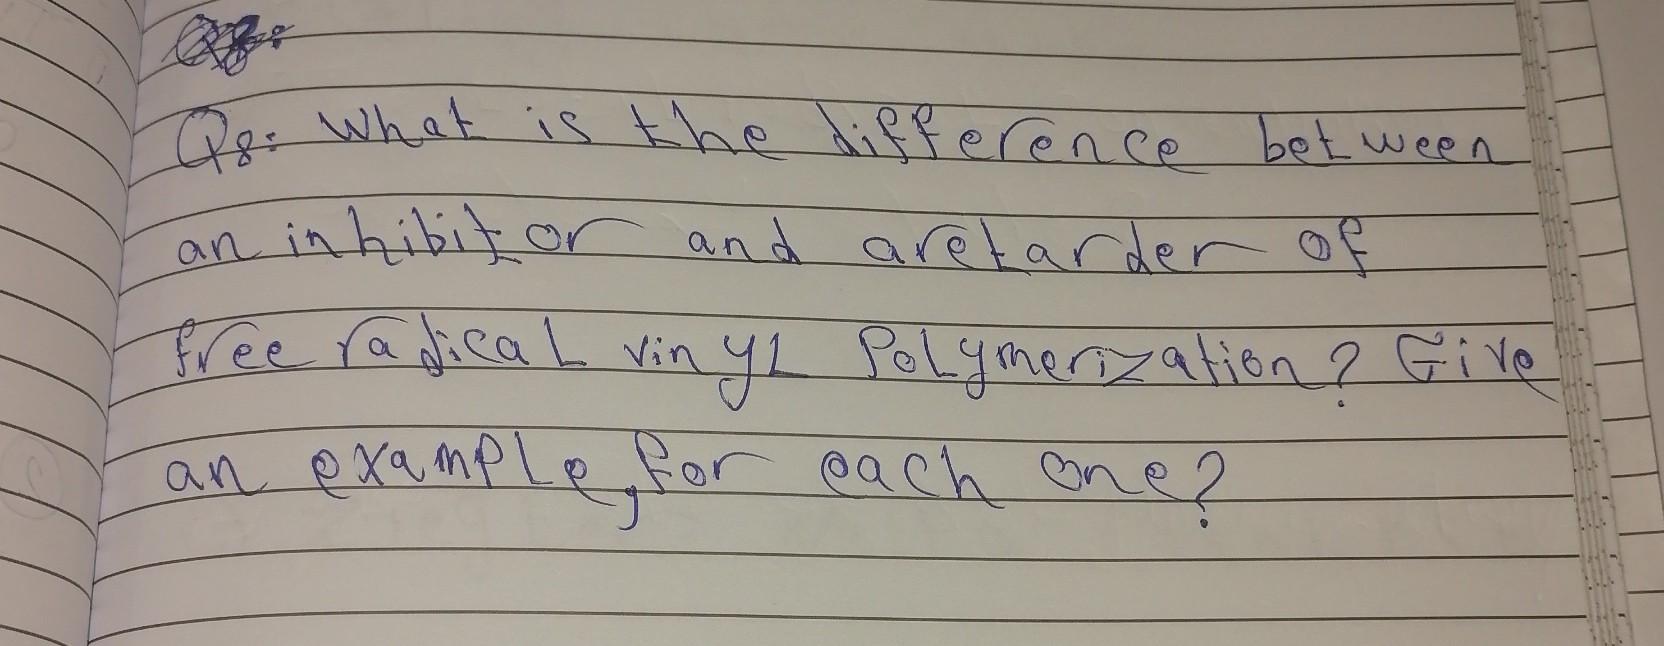 Q8: What is the difference between
an inhibitor and a retarder of
free radical vinyl Polymerization? Give
an example, for each one?